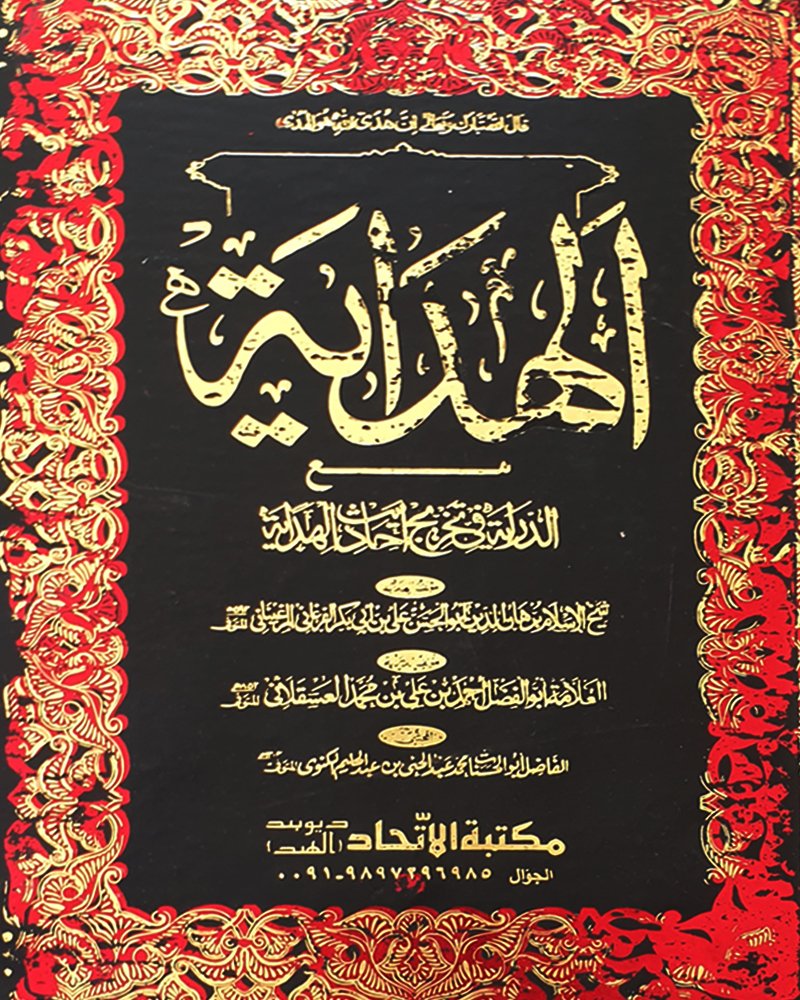 قال الله تبارك وتعالى ان هدى الله هو الهدى
الهداية
مع
الدراية في تخريج أحاديث الهداية
شيخ الإسلام برهان الدين أبو الحسن علي بن أبي بكر الفرغاني المرغيناني المتوفى ٥٩٣هـ
العلامة أبو الفضل أحمد بن علي بن محمد العسقلاني المتوفى ٨٥٢هـ
المحشي
الفاضل أبو الحسنات محمد عبد الحي بن عبد الحليم اللكنوي المتوفى
مكتبة الاتّحاد ديوبند (الهند)
الجوّال ٠٠٩١-٩٨٩٧٢٩٦٩٨٥